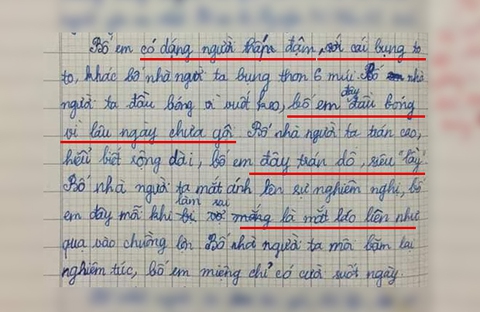 Bố em có dáng người thấp đậm, với cái bụng to
to, khác bố nhà người ta bụng thon 6 múi. Bố nhà
người ta đầu bóng vì vuốt keo, bố em đây đầu bóng
vì lâu ngày chưa gội. Bố nhà người ta trán cao,
hiểu biết rộng dài, bố em đây trán dô, siêu "lầy"
Bố nhà người ta mắt ánh lên sự nghiêm nghị, bố
em đây mỗi khi làm sai bị vợ mắng là mắt láo liên như
qua vào chuồng lợn Bố nhà người ta môi bặm lại
nghiêm túc, bố em miệng chỉ có cười suốt ngày.